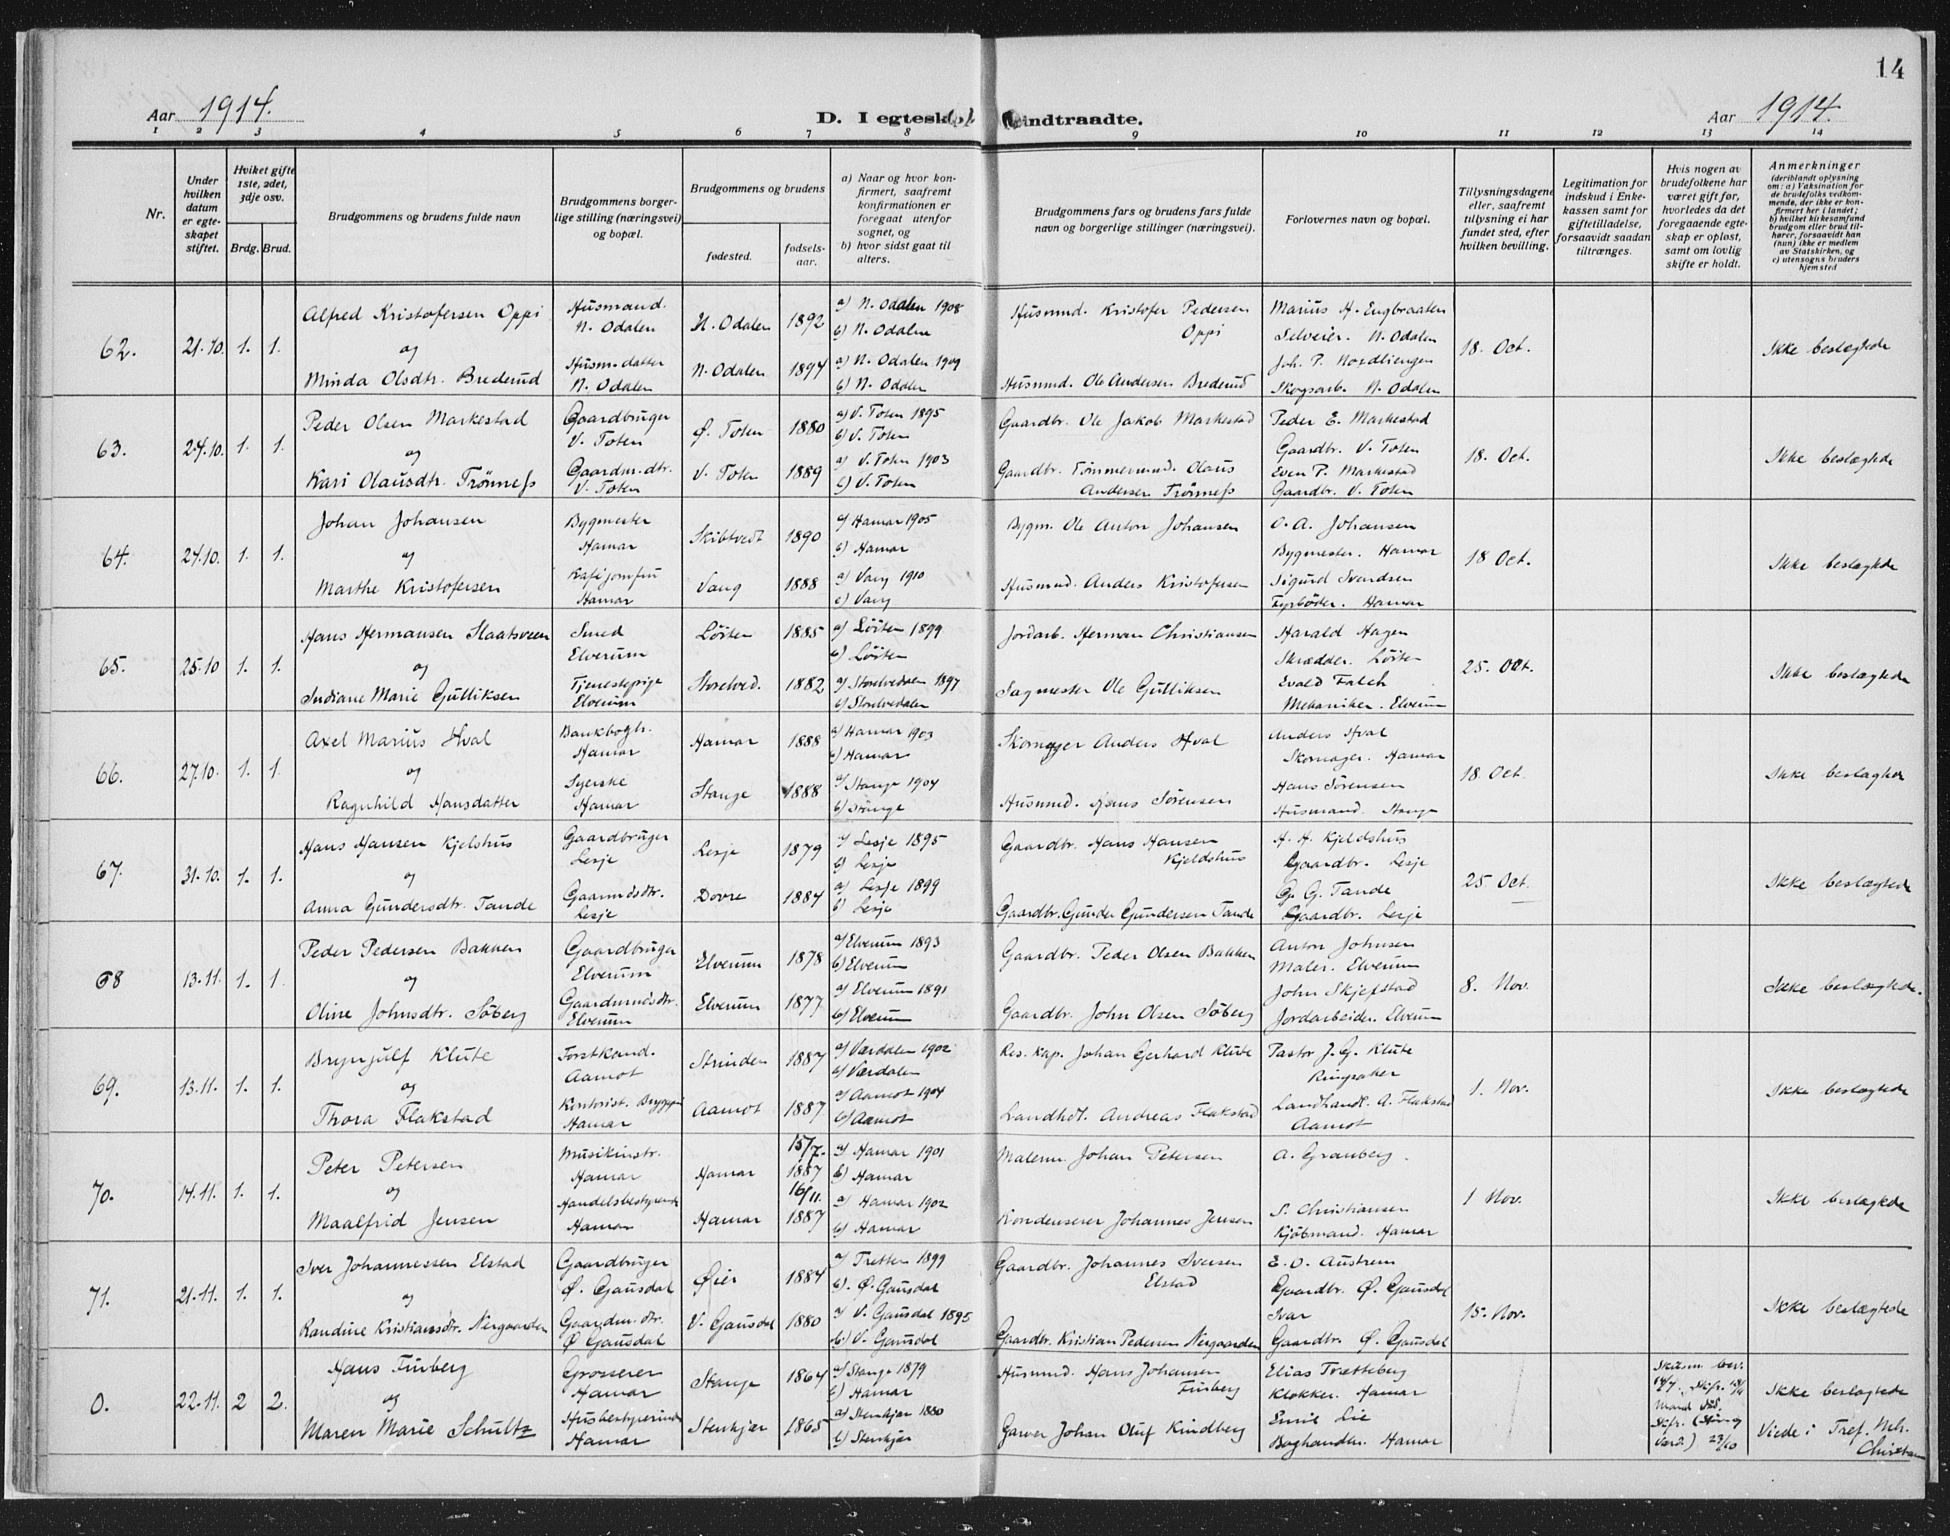 14
Aar 1914.
D. I egteska
indtraadte.
Aar 1914.
1 2 3 4 5 6 7 8 9 10 11 12 13 14
Nr.
Under hvilken datum er egteskapet stiftet.
Hviket gifte 1ste, 2det, 3dje osv.
Brdg. Brud.
Brudgommens og brudens fulde navn
Brudgommens borgerlige stilling (næringsvei) og bopæl.
Brudgommens og brudens
fødested.
fødselsaar.
a) Naar og hvor konfirmert, saafremt konfirmationen er foregaat utenfor sognet, og
b) hvor sidst gaat til alters.
Brudgommens fars og brudens fars fulde navn og borgerlige stillinger (næringsvei).
Forlovernes navn og bopæl.
Tillysningsdagene eller, saafremt tillysning ei har fundet sted, efter hvilken bevilling.
Legitimation for indskud i Enkekassen samt for giftetilladelse, forsaavidt saadan tiltrænges.
Hvis nogen av brudefolkene har været gift før, hvorledes da det foregaaende egteskap er opløst, samt om lovlig skifte er holdt.
Anmerkninger
(deriblandt oplysning om: a) Vaksination for de brudefolks vedkommende, der ikke er konfirmert her i landet; b) hvilket kirkesamfund brudgom eller brud tilhører, forsaavidt han (hun) ikke er medlem av Statskirken, og c) utensogns bruders hjemsted
62. 21.10. 1. 1. Alfred Kristofersen Oppi Husmand. N. Odalen N. Odalen 1892 a) N. Odalen 1908 b) N. Odalen Husmd. Kristofer Pedersen Oppi Marius H. Engbraaten Selveier. N. Odalen 18. Oct. Ikke beslegtede
og
Minda Olsdtr. Brederud Husm. datter N. Odalen N. Odalen 1894 a) N. Odalen 1909 b) N. Odalen Husmd. Ole Andersen Brederud Joh. P. Nordliengen Skogsarb. N. Odalen
63. 24.10. 1. 1. Peder Olsen Markestad Gaardbruger V. Toten Ø. Toten 1880 a) V. Toten 1895 b) V. Toten Gaardbr. Ole Jakob Markestad Peder E. Markestad Gaardbr. V. Toten 18. Oct. Ikke beslegtede
og
Kari Olausdtr. Trönness Gaardm. dtr. V. Toten V. Toten 1889 a) V. Toten 1903 b) V. Toten Gaardbr. Tömmermd. Olaus Andersen Trönness Even P. Markestad Gaardbr. V. Toten
64. 24.10. 1. 1. Johan Johansen Bygmester Hamar Skibtvedt 1890 a) Hamar 1905 b) Hamar Bygm. Ole Anton Johansen O. A. Johansen Bygmester. Hamar 18 Oct. Ikke beslegtede
og
Marthe Kristofersen Kafijomfru Hamar Vang 1888 a) Vang 1910 b) Vang Husmd. Anders Kristofersen Sigurd Svendsen Fyrböder. Hamar
65. 25.10 1. 1. Hans Hermansen Staatsveen Smed Elverum Löiten 1885 a) Löiten 1899 b) Löiten Jordarb. Herman Christiansen Harald Hagen Skrædder. Löiten 25. Oct. Ikke beslegtede
og
Indiane Marie Gulliksen Tjenestepige Elverum Storelved. 1882 a) Storelvedalen 1897 b) Storelvedalen Sagmester Ole Gulliksen Evald Falch Mekaniker. Elverum
66. 27.10. 1. 1. Axel Marius Hval Bankbogh. Hamar Hamar 1888 a) Hamar 1903 b) Hamar Skomager Anders Hval Anders Hval Skomager. Hamar 18. Oct. Ikke beslegtede
og
Ragnhild Hansdatter Syerske Hamar Stange 1888 a) Stange 1904 b) Stange Husmd. Hans Sörensen Hans Sörensen Husmand. Stange
67. 31.10. 1. 1. Hans Hansen Kjelshus Gaardbruger Lesje Lesje 1879 a) Lesje 1895 b) Lesje Gaardbr. Hans Hansen Kjeldshus H. H. Kjeldshus Gaardbr. Lesje 25 Oct. Ikke beslegtede
og
Anna Gundersdtr. Tande Gaarmdsdtr. Lesje Dovre 1884 a) Lesje 1899 b) Lesje Gaardbr. Gunder Gundersen Tande G. G. Tande Gaardbr. Lesje
68 13.11. 1. 1. Peder Pedersen Bakken Gaardbruger Elverum Elverum 1878 a) Elverum 1893 b) Elverum Gaardbr. Peder Olsen Bakken Anton Johnsen Maler. Elverum 8. Nov. Ikke beslegtede.
og
Oline Johnsdtr. Söberg Gaardmndsdtr. Elverum Elverum 1877 a) Elverum 1891 b) Elverum Gaardbr. John Olsen Söberg John Skjefstad Jordarbeider. Elverum
69. 13.11. 1. 1. Brynjulf Klüte Forstkand. Aamot Strinden 1887 a) Værdalen 1902 b) Værdalen Res. Kap. Johan Gerhard Klüte Pastor J. G. Klüte Ringsaker 1. Nov. Ikke beslegtede
og
Thora Flakstad Kontorist. Hamar Aamot 1887 a) Aamot 1904 b) Aamot Landhdl. Andreas Flakstad Landhandl. A. Flakstad Aamot
70. 14.11. 1. 1. Peter Petersen Musikinstr. Hamar Hamar 15/7. 1887 a) Hamar 1901 b) Hamar Malerm. Johan Petersen A. Granberg. 1 Nov. Ikke beslegtede
og
Maalfrid Jensen Handelsbestyrerinde Hamar Hamar 16/11. 1887 a) Hamar 1902 b) Hamar Kondenserer Johannes Jensen P. Christiansen Kjöbmand. Hamar
71. 21.11. 1. 1. Iver Johannessen Elstad Gaardbruger Ø. Gausdal Øier 1884 a) Tretten 1899 b) Ø. Gausdal Gaardbr. Johannes Iversen Elstad E. O. Austrem Gaardbr. Ø. Gausdal 15. Nov. Ikke beslegtede
og
Randine Kristiansdtr. Nergaarden Gaardm. dtr. Ø Gausdal V. Gausdal 1880 a) V. Gausdal 1895 b) V. Gausdal Gaardbr. Kristian Pedersen Nergaarden Ivar Gaardbr. Ø. Gausdal
0. 22.11. 2 2. Hans Furberg Grosserer Hamar Stange 1864 a) Stange 1879 b) Hamar Husmd. Hans Johansen Furberg Elias Trætteberg Klokker. Hamar Ikke beslegtede
og
Maren Marie Schultz Husbestyrerinde Hamar Stenkjær 1865 a) Stenkjær 1880 b) Stenkjær Garver Johan Oluf Kindberg Emil Lie Boghandler. Hamar 23/10 Viede i Tref. Mh. Christian